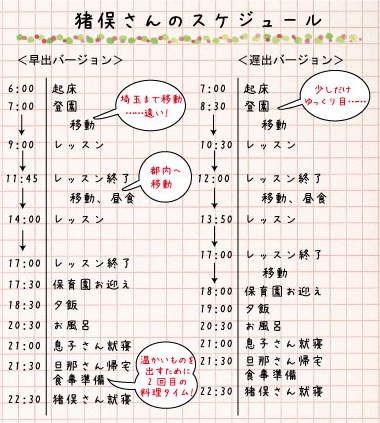 猪俣さんのスケジュール
＜早出バージョン＞
6:00 起床
7:00 登園
移動
埼玉まで移動
……遠い!
9:00 レッスン
11:45 レッスン終了
移動、昼食
都内へ
移動
14:00 レッスン
17:00 レッスン終了
17:30 保育園お迎え
18:30 夕飯
20:30 お風呂
21:00 息子さん就寝
21:30 旦那さん帰宅
食事準備
温かいものを
出すために
2回目の
料理タイム!
22:30 猪俣さん就寝
＜遅出バージョン＞
7:00 起床
8:30 登園
移動
少しだけ
ゆっくり目……
10:30 レッスン
12:00 レッスン終了
移動、昼食
13:50 レッスン
17:00 レッスン終了
移動
18:00 保育園お迎え
19:00 夕飯
20:30 お風呂
21:00 息子さん就寝
21:30 旦那さん帰宅
食事準備
22:30 猪俣さん就寝